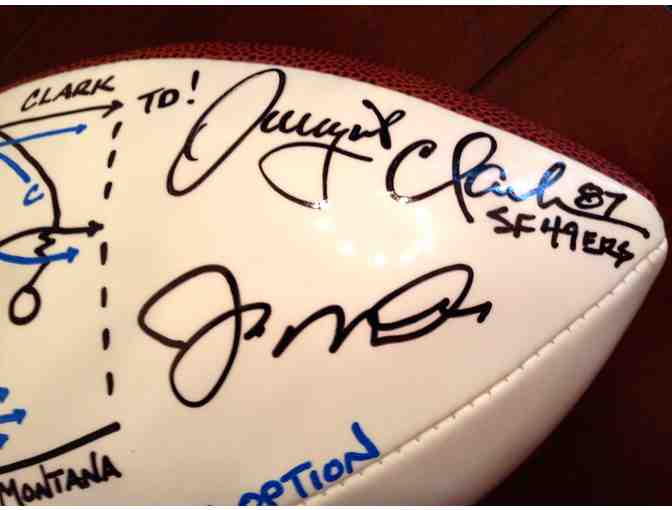 CLARK
TD!
Dwight Clark 87
SF 49ERS
C
MONTANA
OPTION